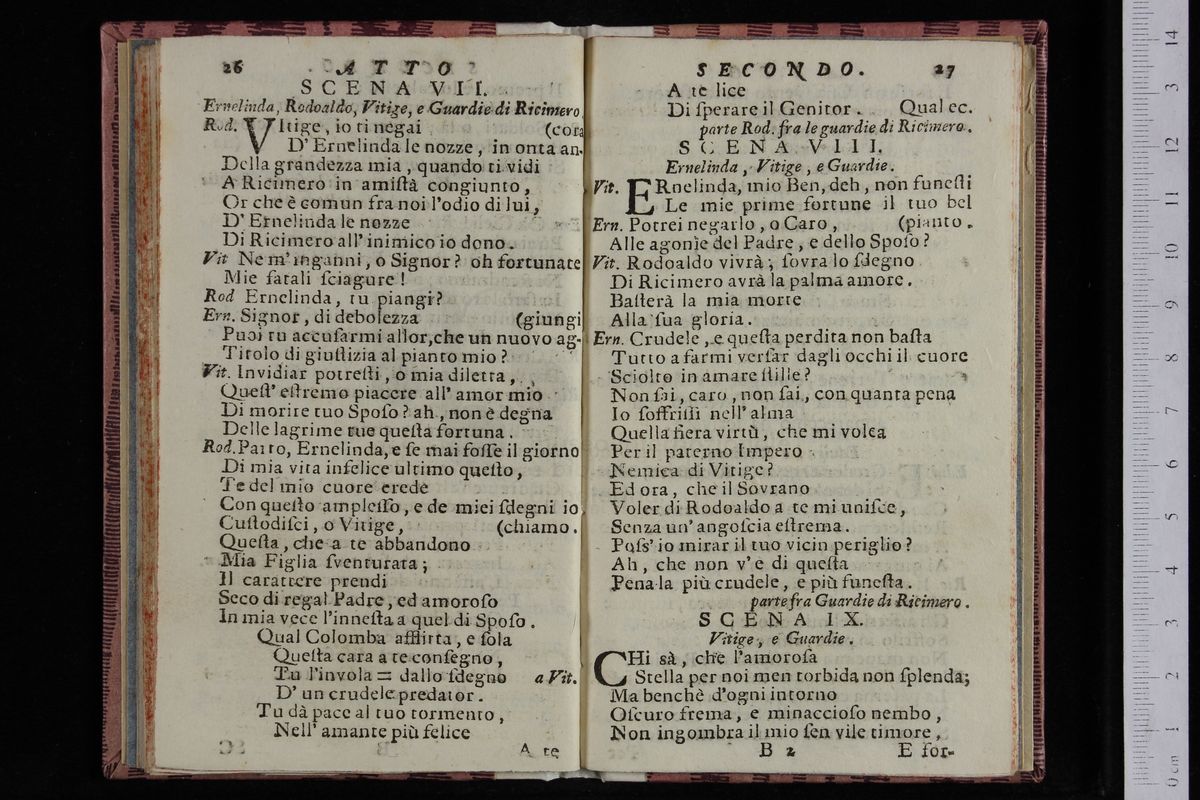 26 ATTO
SCENA VII.
Ernelinda, Rodoaldo, Vitige, e Guardie di Ricimero
Rod. VItige, io ti negai (cora
D' Ernelinda le nozze, in onta an-
Della grandezza mia, quando ti vidi
A Ricimero in amiſtà congiunto,
Or che è comun fra noi l'odio di lui,
D' Ernelinda le nozze
Di Ricimero all' inimico io dono.
Vit Ne m'inganni, o Signor? oh fortunate
Mie fatali ſciagure!
Rod Ernelinda, tu piangi?
Ern. Signor, di debolezza (giungi
Puoi tu accuſarmi allor, che un nuovo ag-
Titolo di giuſtizia al pianto mio?
Vit. Invidiar potreſti, o mia diletta,
Queſt' eſtremo piacere all' amor mio
Di morire tuo Spoſo? ah, non è degna
Delle lagrime tue queſta fortuna.
Rod. Parto, Ernelinda, e ſe mai foſſe il giorno
Di mia vita infelice ultimo queſto,
Te del mio cuore erede
Con queſto ampleſſo, e de miei ſdegni io
Cuſtodiſci, o Vitige, (chiamo.
Queſta, che a te abbandono
Mia Figlia ſventurata;
Il carattere prendi
Seco di regal Padre, ed amoroſo
In mia vece l'inneſta a quel di Spoſo.
Qual Colomba afflitta, e ſola
Queſta cara a te conſegno,
Tu l'invola = dallo ſdegno a Vit.
D' un crudele predator.
Tu dà pace al tuo tormento,
Nell' amante più felice
A te
SECONDO. 27
A te lice
Di ſperare il Genitor. Qual ec.
parte Rod. fra le guardie di Ricimero.
SCENA VIII.
Ernelinda, Vitige, e Guardie.
Vit. ERnelinda, mio Ben, deh, non funeſti
Le mie prime fortune il tuo bel
Ern. Potrei negarlo, o Caro, (pianto.
Alle agonìe del Padre, e dello Spoſo?
Vit. Rodoaldo vivrà; ſovra lo ſdegno
Di Ricimero avrà la palma amore.
Baſterà la mia morte
Alla ſua gloria.
Ern. Crudele, e queſta perdita non baſta
Tutto a farmi verſar dagli occhi il cuore
Sciolto in amare ſtille?
Non ſai, caro, non ſai, con quanta pena
Io ſoffriſſi nell' alma
Quella fiera virtù, che mi volea
Per il paterno Impero
Nemica di Vitige?
Ed ora, che il Sovrano
Voler di Rodoaldo a te mi uniſce,
Senza un' angoſcia eſtrema.
Poſs' io mirar il tuo vicin periglio?
Ah, che non v'e di queſta
Pena la più crudele, e più funeſta.
parte fra Guardie di Ricimero.
SCENA IX.
Vitige, e Guardie.
CHi sà, che l'amoroſa
Stella per noi men torbida non ſplenda;
Ma benchè d'ogni intorno
Oſcuro frema, e minaccioſo nembo,
Non ingombra il mio ſen vile timore,
B 2 E for-
0cm 1 2 3 4 5 6 7 8 9 10 11 12 13 14